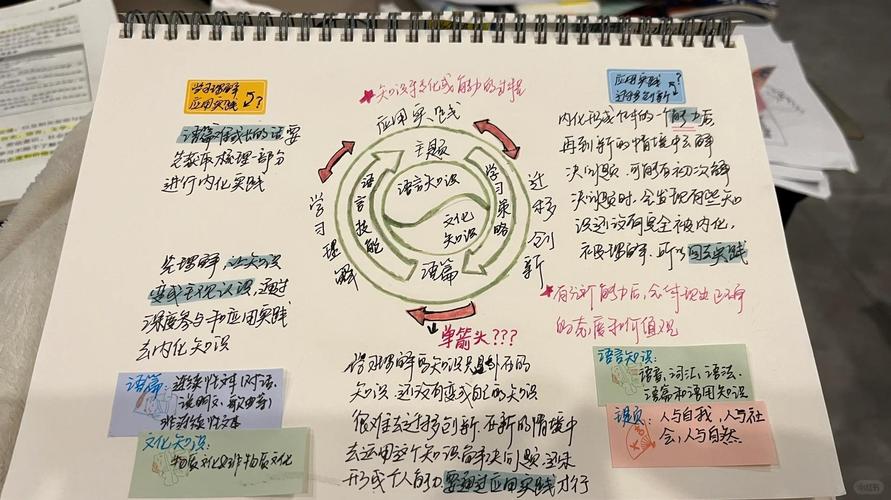 学习理解
应用实践?
语篇难或长的话要
先获取梳理一部分
进行内化实践
★知识转化成能力的过程
应用实践
学习理解
迁移创新
主题
语言知识
文化
知识
语言技能
学习策略
语篇
单箭头???
应用实践
迁移创新?
内化形成个体的一个能力后
再到新的情境中去解
决问题,可能有初次解
决问题时,会发现有些知
识还没有完全被内化,
被理解,所以回去实践
★有分析能力后,会体现出已有
的态度和价值观
先理解,让知识
变成主观认识,通过
深度参与和应用实践
去内化知识
语篇:连续性文本(对话、
说明文、散文等)
非连续性文本
文化知识:
物质文化和非物质文化
得到理解的知识只是外在的
知识,还没有变成自己的知识
很难去迁移创新,在新的情境中
去运用这个知识解决问题,要
形成个人能力要通过应用实践才行
语言知识:
语音、词汇、语法、
语篇和语用知识
主题:人与自我,人与社
会,人与自然
小红书